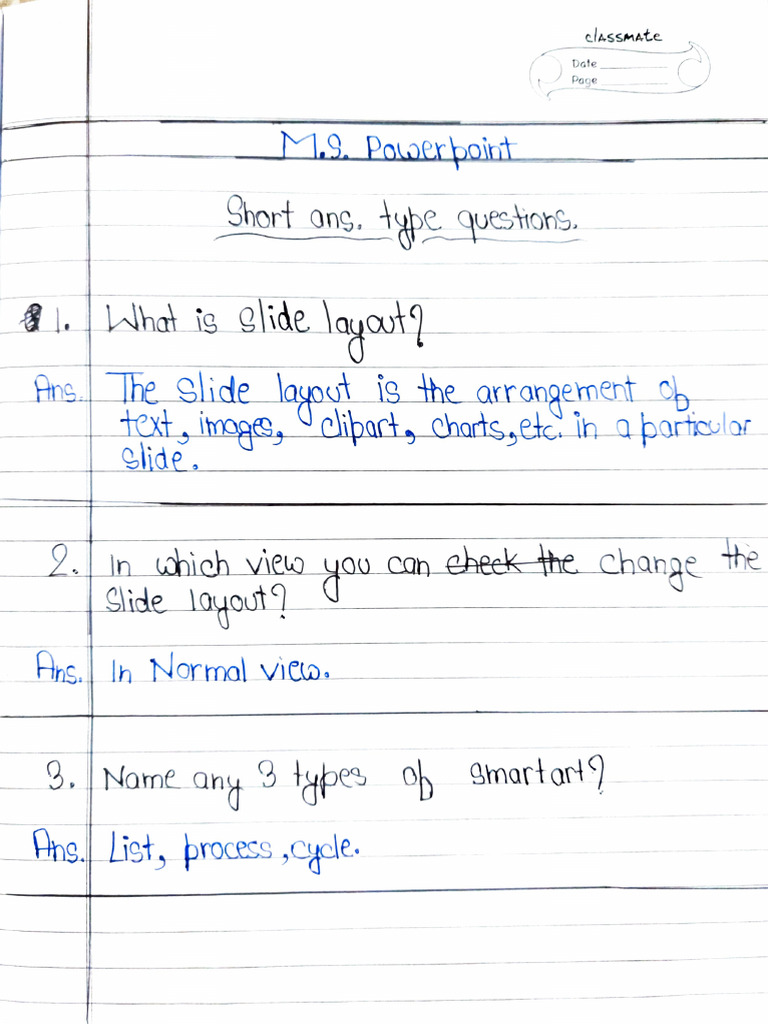 classmate
Date
Page
M.S. Powerpoint
Short ans. type questions.
1. What is slide layout?
Ans. The slide layout is the arrangement of
text, images, clipart, charts, etc. in a particular
slide.
2. In which view you can check the change the
slide layout?
Ans. In Normal view.
3. Name any 3 types of smartart?
Ans. List, process, cycle.